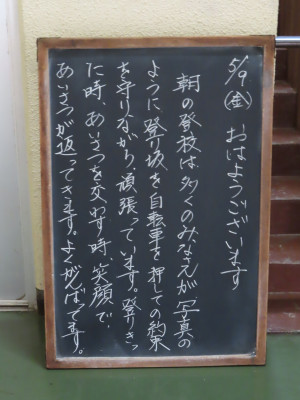 5/9 ㊎ おはようございます
朝の登校は、多くのみなさんが、写真の
ように登り坂を自転車を押しての約束
を守りながら、頑張っています。登りきっ
た時、あいさつを交わす時、笑顔で、
あいさつが返ってきます。よくがんばってます。